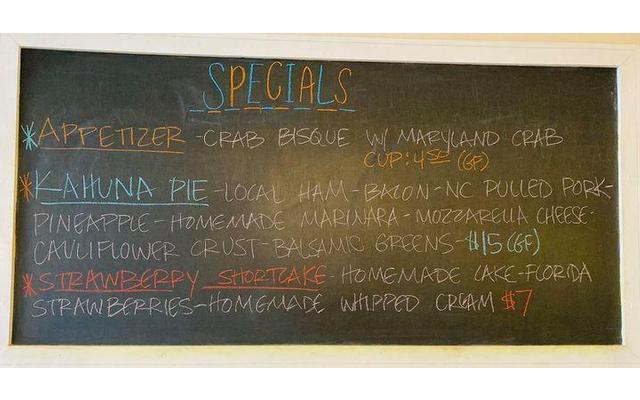 SPECIALS
*APPETIZER - CRAB BISQUE W/ MARYLAND CRAB
CUP: 4.50 (GF)
*KAHUNA PIE - LOCAL HAM - BACON - NC PULLED PORK -
PINEAPPLE - HOMEMADE MARINARA - MOZZARELLA CHEESE -
CAULIFLOWER CRUST - BALSAMIC GREENS - $15 (GF)
*STRAWBERRY SHORTCAKE - HOMEMADE CAKE - FLORIDA
STRAWBERRIES - HOMEMADE WHIPPED CREAM $7